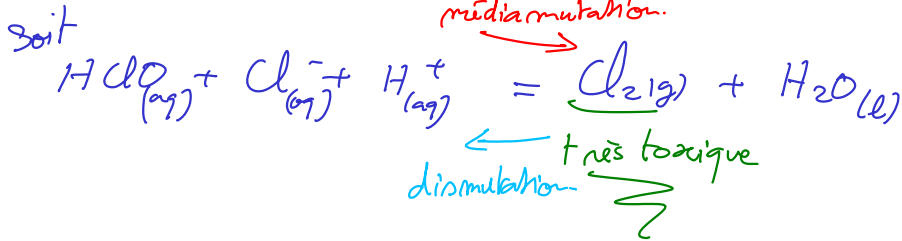 médiamutation.
Soit
HClO(aq) + Cl⁻(aq) + H⁺(aq) = Cl₂(g) + H₂O(l)
très toxique
dismutation.